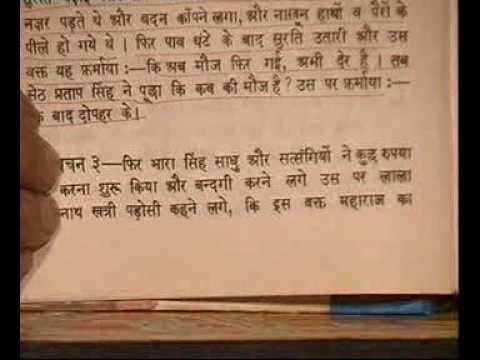 नज़र पड़ते थे और बदन काँपने लगा, और नाख़ून हाथों व पैरों के
पीले हो गये थे । फिर पाव घंटे के बाद सुरति उतारी और उस
वक्त यह फ़र्माया :—कि अब मौज फिर गई, अभी देर है । तब
सेठ प्रताप सिंह ने पूछा कि कब की मौज है ? उस पर फ़र्माया :—
के बाद दोपहर के।
चन ३—फिर भारा सिंह साधु और सत्संगियों ने कुछ रुपया
करना शुरू किया और बन्दगी करने लगे उस पर लाला
नाथ खत्री पड़ोसी कहने लगे, कि इस वक्त महाराज का